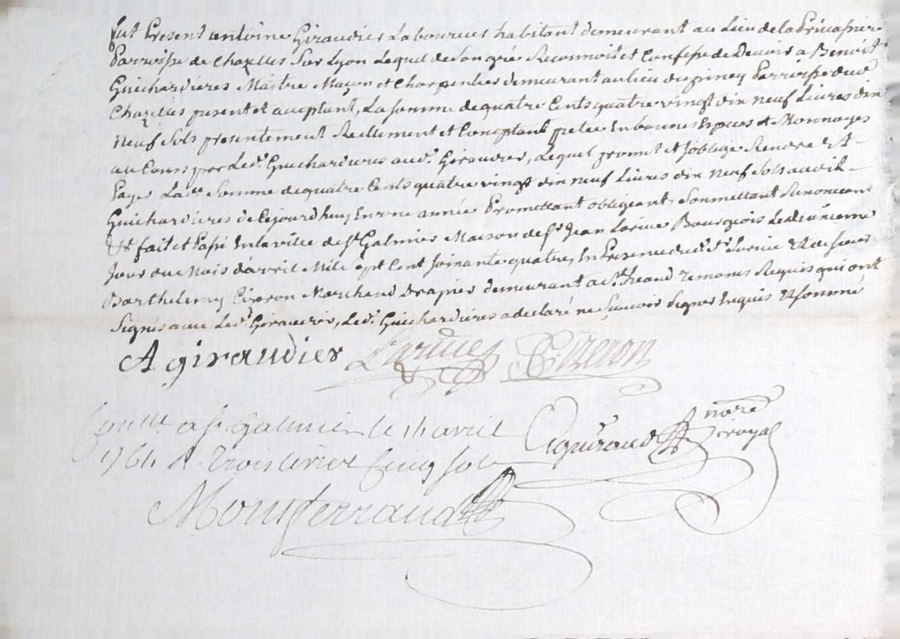 fut Present antoine Giraudier Laboureur habitant demeurant au Lieu de la
Parroisse de Chazelles Sur Lyon Lequel de Son gré Reconnoit et Confesse de Devoir a Benoit
Guichardieres Maitre Maçon et Charpentier demeurant au lieu du piney Parroisse dud.
Chazelles present et acceptant, La Somme de quatre Cents quatre vingt dix neuf Livres dix
Neuf Sols presentement Reellement et Comptant En bonnes Especes et Monnoyes
au Cours par Led. Guichardieres aud. Giraudier, Lequel promet et soblige Rendre & A
Paye Lad. Somme de quatre Cents quatre vingt dix neuf Livres dix neuf Sols audit
Guichardieres de Cejourdhuy En une années Promettant obligeant, Soumettant Renoncant
fait et Passé En la ville de St. Galmier Maison de Sr. Jean Bourgeois Le
Jour du Mois davril Mil Sept Cent Soixante quatre, En Presence dud. Sr. & de Sieur
Barthelemy Cizeron Marchand Drapier demeurant a St. temoins Requis qui ont
Signés avec Led. Giraudier, Led. Guichardieres a declaré ne Scavoir Signer Enquis & Somme
A giraudier Cizeron
a St. Galmier le avril
1764 R. trois livres cinq sols
nore royal
Montferrand